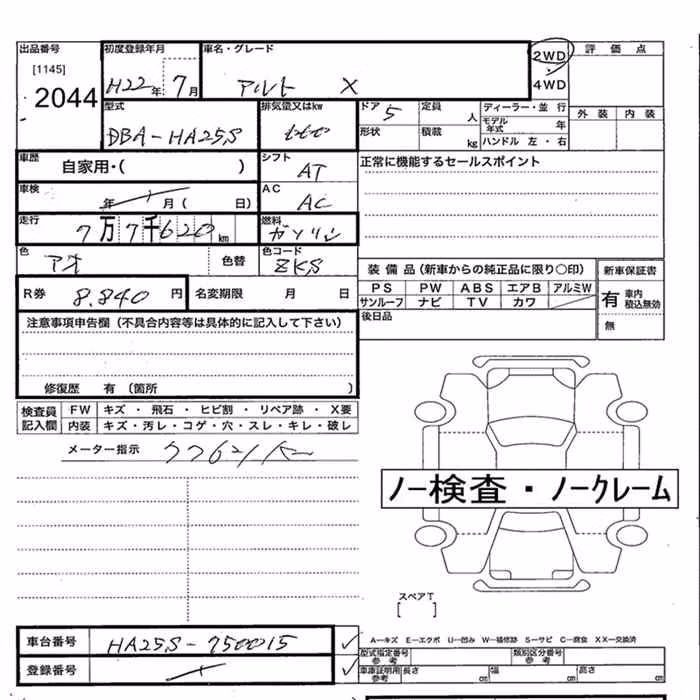 出品番号 初度登録年月 車名・グレード 2WD 評価点
[1145] H22年 7月 アルト X 4WD
2044
型式 排気量又はkw ドア 5 定員 人 ディーラー・並行 外装 内装
DBA-HA25S 660 形状 積載 kg モデル年式 年
ハンドル 左・右
車歴 自家用・( ) シフト AT 正常に機能するセールスポイント
車検 年 月( 日) AC AC
走行 7万7千620km 燃料 ガソリン
色 アオ 色替 色コード ZKS
装備品(新車からの純正品に限り〇印) 新車保証書
R券 8.840円 名変期限 月 日 PS PW ABS エアB アルミW 有 車内積込無効
サンルーフ ナビ TV カワ 無
注意事項申告欄(不具合内容等は具体的に記入して下さい) 後日品
修復歴 有(箇所 )
検査員記入欄 FW キズ・飛石・ヒビ割・リペア跡・X要
内装 キズ・汚レ・コゲ・穴・スレ・キレ・破レ
メーター指示
ノー検査・ノークレーム
スペアT
[ ]
車台番号 HA25S-750015 A−キズ E−エクボ U−凹み W−補修跡 S−サビ C−腐食 XX−交換済
型式指定番号 参考 類別区分番号 参考
登録番号 車庫証明用 参考 長さ cm 幅 cm 高さ cm